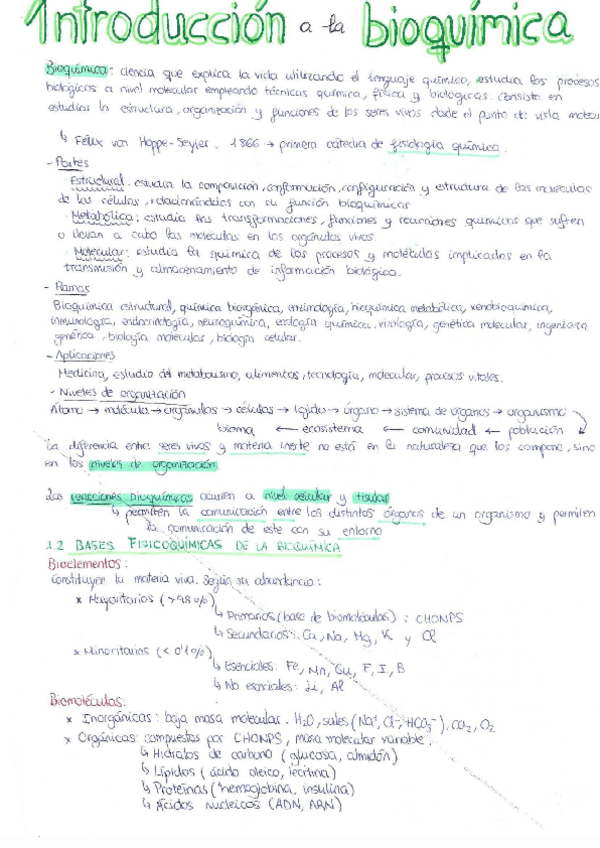 Introducción a la bioquímica
Bioquímica: ciencia que explica la vida utilizando el lenguaje químico, estudia los procesos
biológicos a nivel molecular empleando técnicas química, física y biológicas. Consiste en
estudios la estructura, organización y funciones de los seres vivos desde el punto de vista
↳ Felix von Hoppe-Seyler. 1866 → primera cátedra de fisiología química.
- Partes
· Estructural: estudia la composición, conformación, configuración y estructura de las moléculas
de las células, relacionándolas con su función bioquímicas
· Metabólica: estudia las transformaciones, funciones y reacciones químicas que sufren
o llevan a cabo las moléculas en los orgánulos vivos.
· Molecular: estudia la química de los procesos y moléculas implicados en la
transmisión y almacenamiento de información biológica.
- Ramas
Bioquímica estructural, química bioorgánica, enzimología, bioquímica metabólica, xenobioquímica,
inmunología, endocrinología, neuroquímica, ecología química, virología, genética molecular, ingeniería
genética, biología molecular, biología celular.
- Aplicaciones
Medicina, estudio del metabolismo, alimentos, tecnología, molecular, procesos vitales.
- Niveles de organización
Átomo → molécula → orgánulos → células → tejido → órgano → sistema de órganos → organismo
bioma ← ecosistema ← comunidad ← población
La diferencia entre seres vivos y materia inerte no está en la naturaleza que los compone, sino
en los niveles de organización
Las reacciones bioquímicas ocurren a nivel celular y tisular
↳ permiten la comunicación entre los distintos órganos de un organismo y permiten
la comunicación de este con su entorno
1.2 BASES FISICOQUÍMICAS DE LA BIOQUÍMICA
Bioelementos:
Constituyen la materia viva. Según su abundancia:
× Mayoritarios (>98%)
↳ Primarios (base de biomoléculas): CHONPS
↳ Secundarios: Ca, Na, Mg, K y Cl
× Minoritarios (< 0'1%)
↳ Esenciales: Fe, Mn, Cu, F, I, B
↳ No esenciales: Li, Al
Biomoléculas:
× Inorgánicas: baja masa molecular. H₂O, sales (Na⁺, Cl⁻, HCO₃⁻), CO₂, O₂
× Orgánicas: compuestas por CHONPS, masa molecular variable.
↳ Hidratos de carbono (glucosa, almidón)
↳ Lípidos (ácido oleico, lecitina)
↳ Proteínas (hemoglobina, insulina)
↳ Ácidos nucleicos (ADN, ARN)